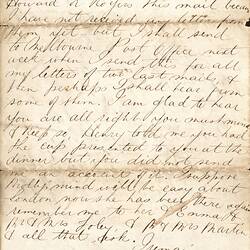 Howard or Rogers this mail becau
I have not received any letter from
them yet but I shall send
to Melbourne Post Office next
week when I send this for all
my letters of two last mails, &
then perhaps I shall hear from
some of them. I am glad to hear
you are all right you must
& keep so, Henry told me you had
the cup presented to you at the
dinner but you did not send
me an account of it. I suppose
mind will be easy about
London now she has been there again
remember me to her & Emma &
Mr & Mrs Foley & Mr & Mrs Martin
& all that